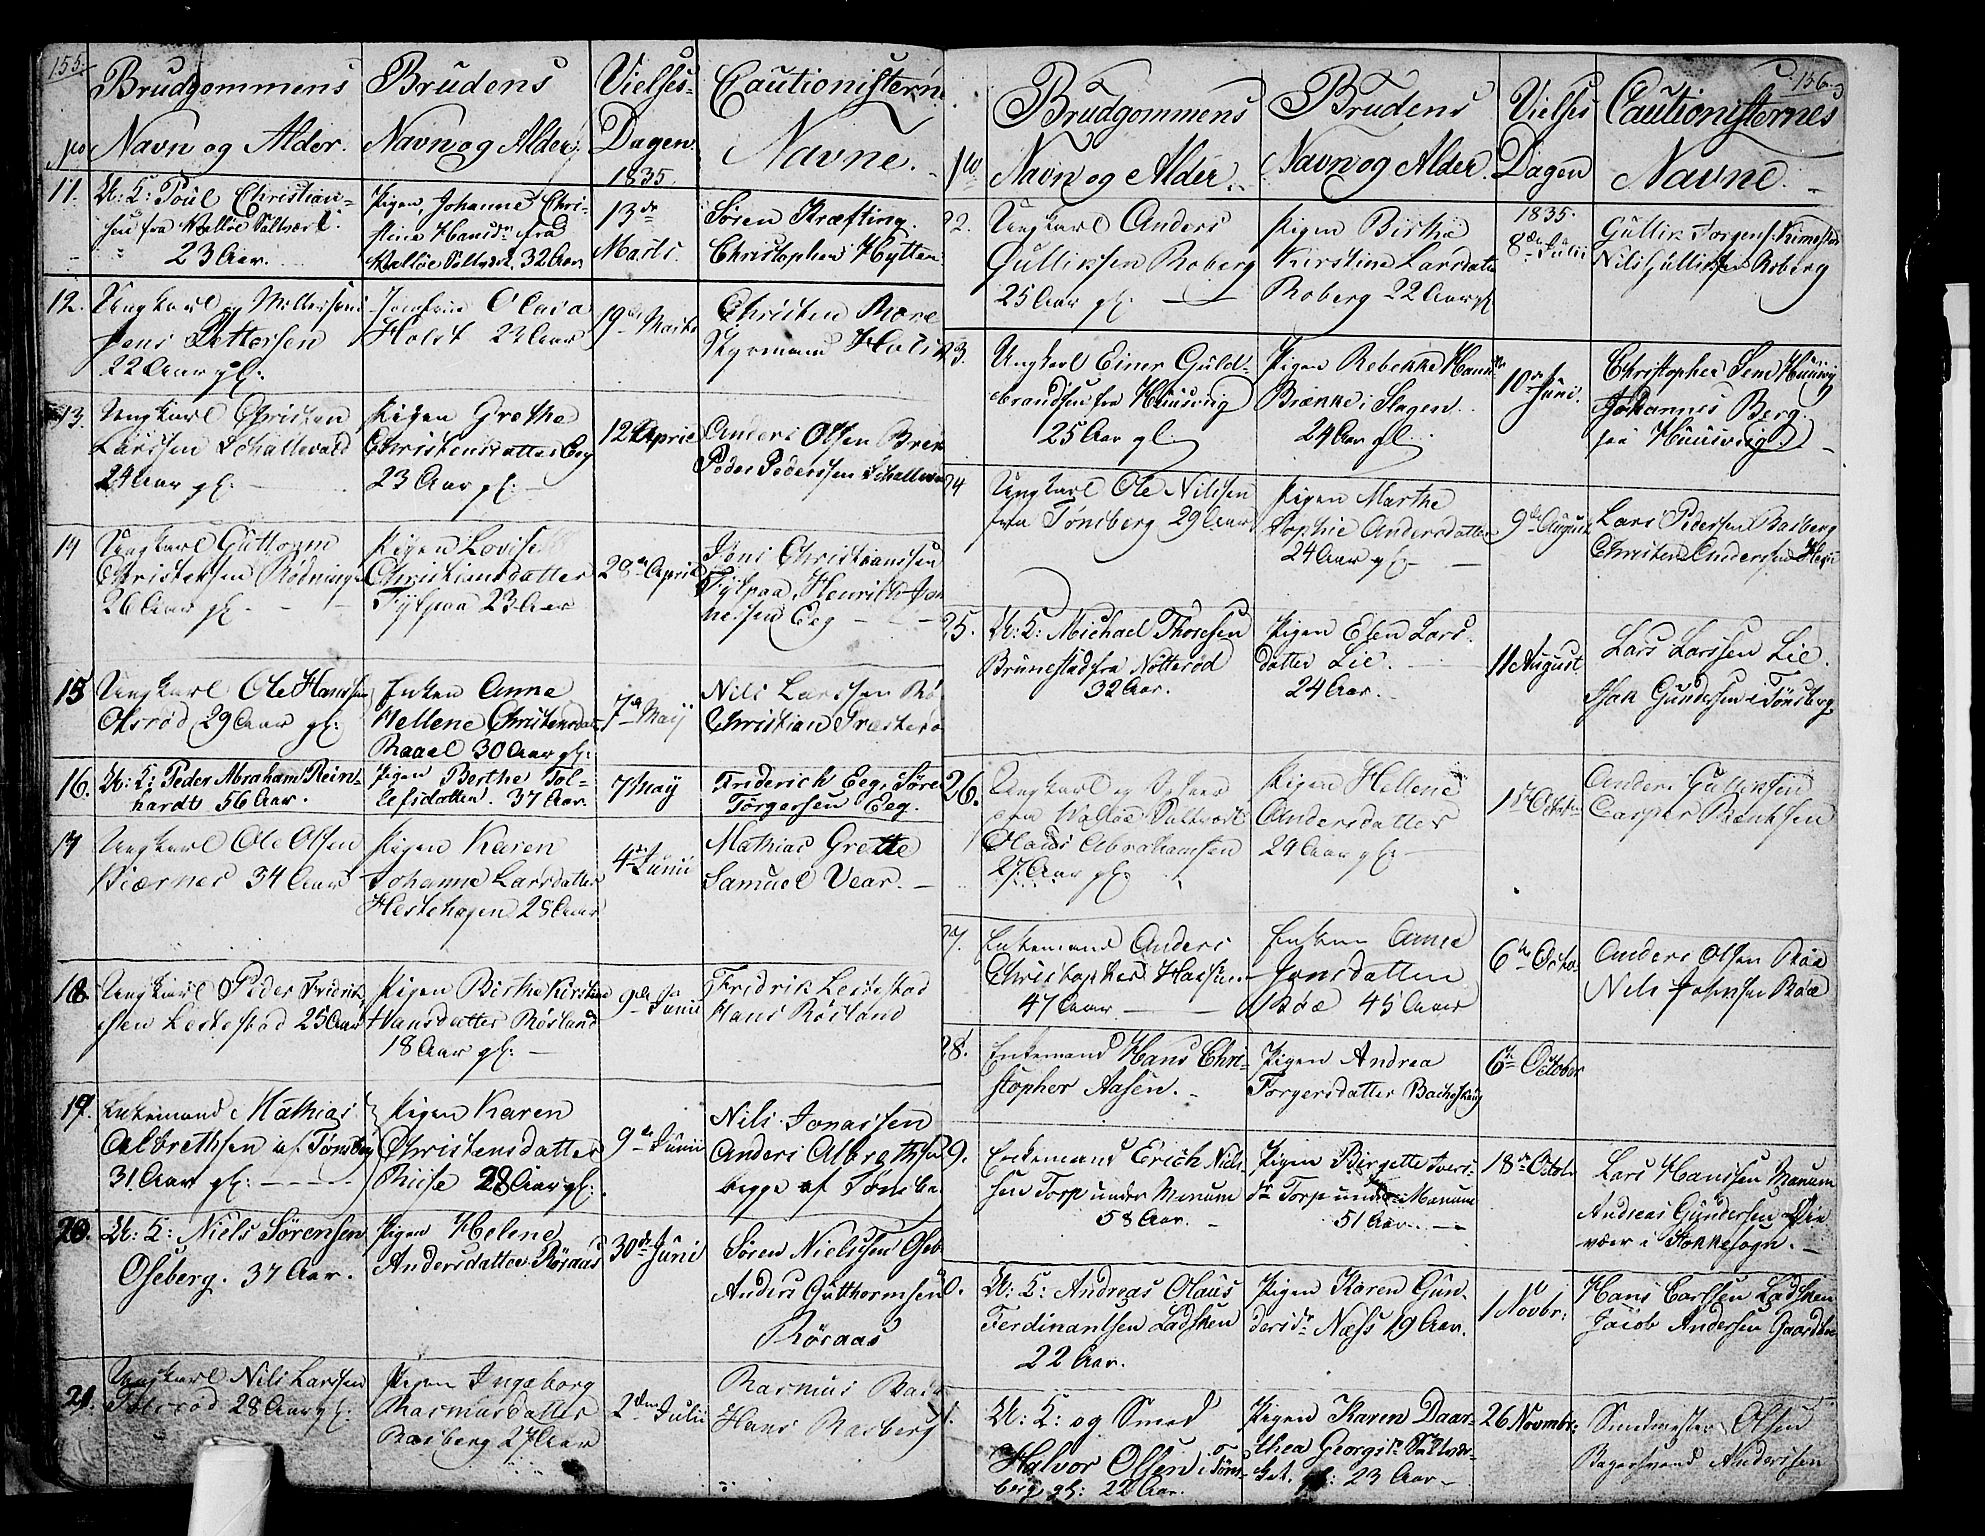 155.
Brudgommens
Navn og Alder.
Brudens
Navn og Alder.
Vielses-
Dagen
1835.
Cautionisterne
Navne.
No
11. U: K: Poul Christian-
sen fra Valløe Saltværk.
23 Aar.
Pigen Johanne Chri-
stine Hansdr fra
Valløe Saltværk 32 Aar
13de
Marts.
Søren Kræfting.
Christopher Hytten
12. Ungkarl og
Jens Pettersen
22 Aar gl.
Jomfrue Olava
Holst 22 Aar
19de Marts
Christen
Styrmand Holst
13. Ungkarl Christen
Larssen Schallevald
24 Aar gl.
Pigen Grethe
Christensdatter Eeg
23 Aar gl.
12 April
Anders Olsen
Peder Pederssen Schallevald
14 Ungkarl Guttorm
Christensen Rødninge
26 Aar gl.
Pigen Lovise
Christiansdatter
Tÿlpaa 23 Aar
28de April
Jens Christianssen
Tÿlpaa, Henrik Jo-
hnessen Eeg
15 Ungkarl Ole Hanssen
Olsrød 29 Aar gl.
Enken Anne
Hellene Christensdatt
Raael 30 Aar gl.
7de Maÿ
Nils Larssen
Christian Træsterø
16. U: K: Peder Abraham Rein-
hardt 56 Aar.
Pigen Berthe Tol-
lefsdatter. 37 Aar.
7 Maÿ
Friderich Eeg, Søre
Torgersen Eeg.
17 Ungkarl Ole Olsen
Biærnes 34 Aar
Pigen Karen
Johanne Larsdatter
Hestehagen 28 Aar
4de Junii
Mathias Grette
Samuel Vear.
18 Ungkarl Peder Fridrik
sen Lestestad 25 Aar
Pigen Birthe Kirstine
Hansdatter Røsland
18 Aar gl.
9de Junii
Fridrik Lestestad
Hans Røsland
19. Enkemand Mathias
Albrethsen af Tønsberg
31 Aar gl.
Pigen Karen
Christensdatter
Riise 28 Aar gl.
9de Junii
Nils Jonassen
Anders Albrethsen
begge af Tønsbe
20. U: K: Niels Sørensen
Oseberg. 37 Aar.
Pigen Helene
Andersdatter Røraas
30de Juni
Søren Nielssen Oseb
Anders Gutthormsen
Røraas
21. Ungkarl Nils Larssen
28 Aar gl.
Pigen Ingeborg
Rasmusdatter
Basberg 27 Aar
2den Julii
Rasmus Bas
Hans Basberg
156.
Brudgommens
Navn og Alder.
Brudens
Navn og Alder.
Vielses
Dagen
1835.
Cautionisternes
Navne.
22. Ungkarl Anders
Gulliksen Roberg
25 Aar gl.
Pigen Birthe
Kirstine Larsdatter
Roberg 22 Aar gl
8de Julii
Gullik Jorgens.
Nils Gulliksen Roberg
23. Ungkarl Einer Guld-
brandsen fra Huusvig
25 Aar gl.
Pigen Rebekke Hansdr
Brække i Slagen.
24 Aar gl.
10de Juni.
Christopher Sem Huusvig
Johannes Berg.
paa Huusvig.
24 Ungkarl Ole Nilssen
fra Tønsberg 29 Aar
Pigen Marthe
Sophie Andersdatter
24 Aar gl.
9de August
Lars Pedersen Basberg
Christen Anderssen
25. U: K: Michael Thoresen
Brunestad fra Nøtterød
32 Aar.
Pigen Elen Lars-
datter Lie.
24 Aar.
11 August
Lars Larssen Lie.
Isak Gundersen i Tønsberg
26. Ungkarl og
paa Walløe Saltværk
Hans Abrahamsen
27 Aar gl.
Pigen Hellene
Andersdatter
29 Aar gl.
Anders Gulliksen
Casper Bentsen
27. Enkemand Anders
Christopher Hanssen
47 Aar
Enken Anne
Jensdatter
Røe 45 Aar
6te Octo
Anders Olsen Røe
Nils Johnsen Røe
28. Enkemand Hans Chri-
stopher Aasen.
Pigen Andrea
Torgersdatter Bacheskoug
6te October
29. Enkemand Erich Niels-
sen Torp under Manum
58 Aar.
Pigen Birgette Ivers-
dr Torp under Manum
51 Aar.
18de Octobr
Lars Hanssen Manum
Andreas Gundersen
væer i Stokke sogn.
30. U: K: Andreas Olaus
Ferdinantsen Ladsken
22 Aar.
Pigen Karen Gun-
dersdr Næss 19 Aar.
1 Novbr:
Hans Carlsen Ladsken
Jacob Andersen
31. U: K: og Smed
Halvor Olsen i Tøns-
berg gl: 22 Aar.
Pigen Karen Daar-
thea Georgsdr Saltvær-
ket. gl: 23 Aar
26 Novmbr:
Smedmester Olsen
Anderssen